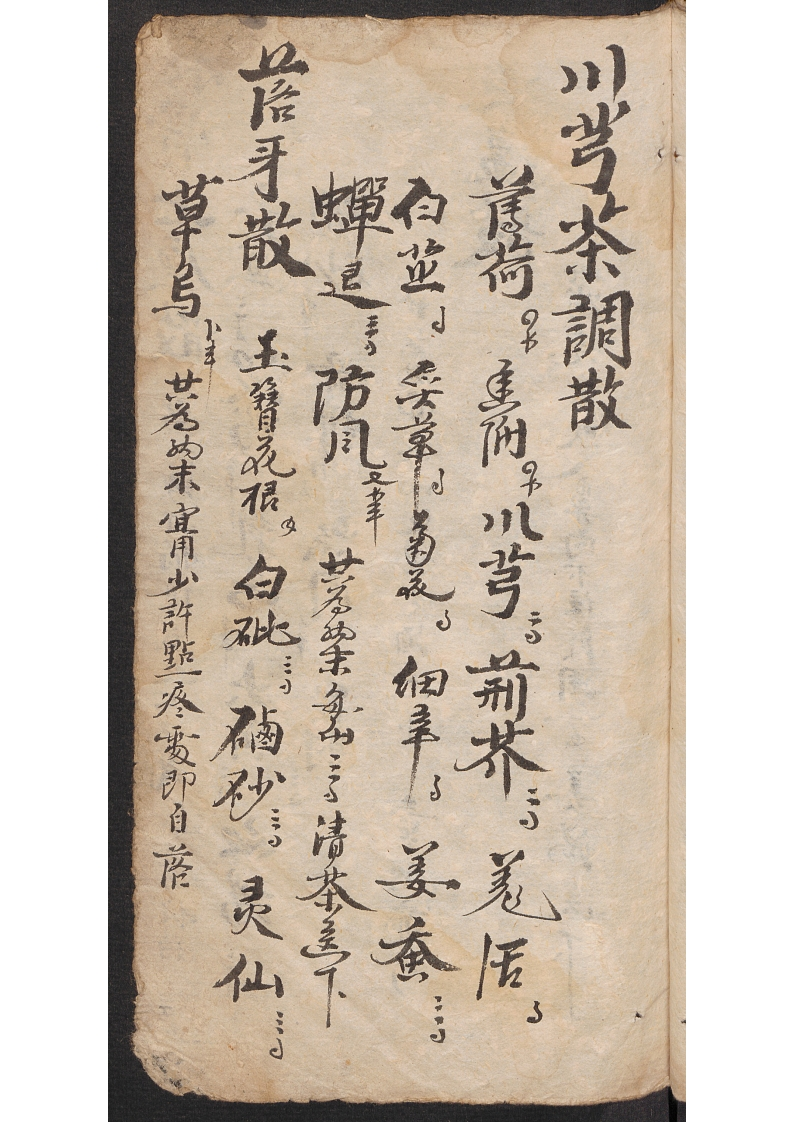 川芎茶調散
薄荷 香附 川芎 荊芥 羌活
白芷 甘草 菊花 細辛 姜蚕
蟬退 防風 共為細末每服 清茶送下
落牙散 玉簪花根 白砒 硇砂 灵仙
草烏 共為細末甯少許點疼處即自落